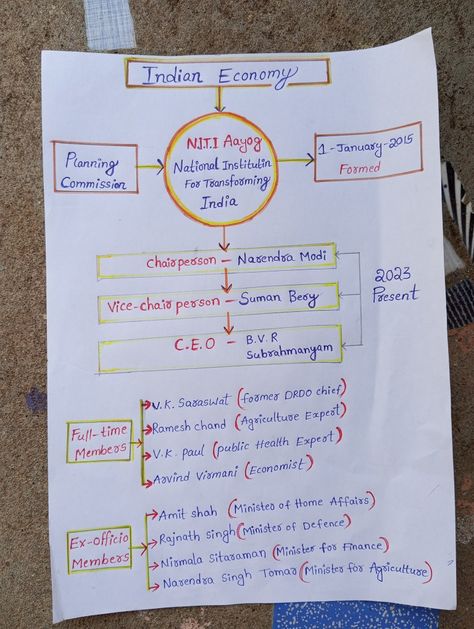 Indian Economy
Planning
Commission
N.I.T.I Aayog
National Institutin
For Transforming
India
1-January-2015
Formed
Chairperson - Narendra Modi
Vice-chairperson - Suman Bery
C.E.O - B.V.R
Subrahmanyam
2023
Present
Full-time
Members
V.K. Saraswat (former DRDO chief)
Ramesh chand (Agriculture Expert)
V.K. paul (public Health Expert)
Arvind Virmani (Economist)
Ex-officio
Members
Amit shah (Minister of Home Affairs)
Rajnath singh (Minister of Defence)
Nirmala Sitaraman (Minister for Finance)
Narendra Singh Tomar (Minister for Agriculture)